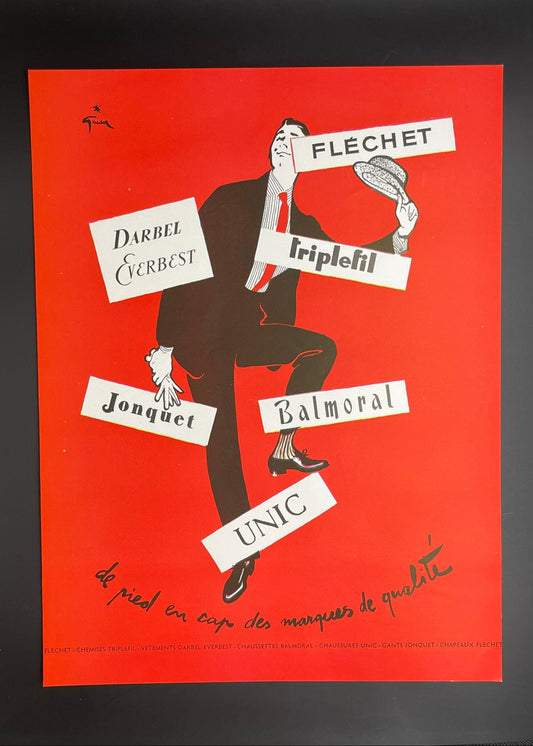 Gruau
FLÉCHET
DARBEL
EVERBEST
triplefil
Jonquet
Balmoral
UNIC
de pied en cap des marques de qualité
FLÉCHET - CHEMISES TRIPLEFIL - VETEMENTS DARBEL EVERBEST - CHAUSSETTES BALMORAL - CHAUSSURES UNIC - GANTS JONQUET - CHAPEAUX FLECHET